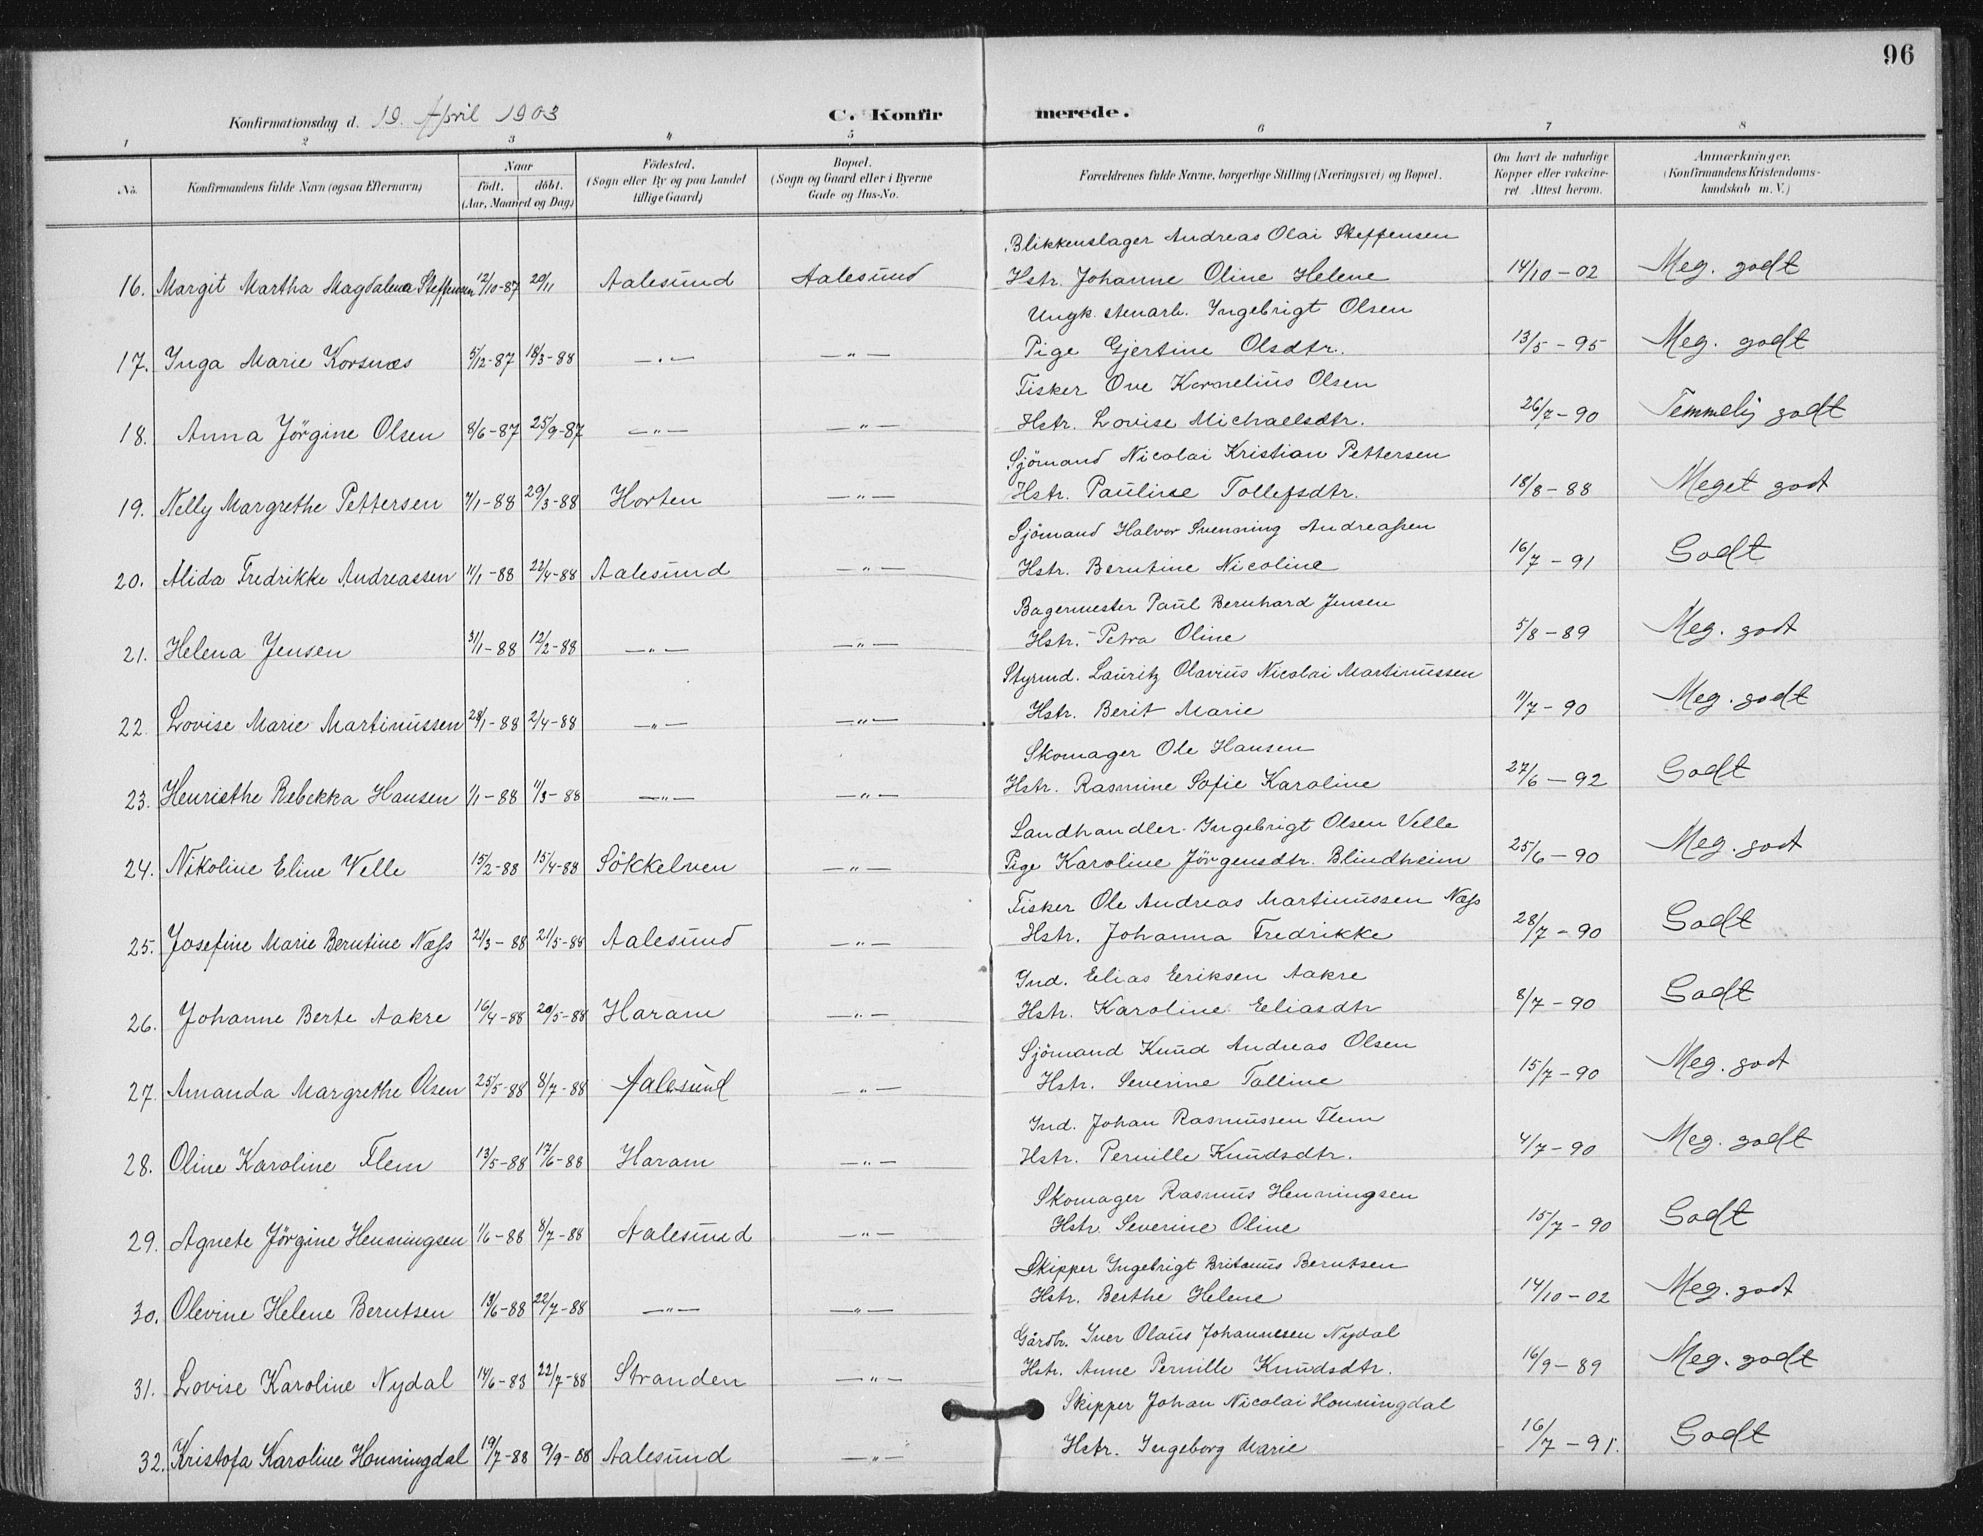 96
Konfirmationsdag d. 19. April 1903 C. Konfirmerede.
1 2 3 4 5 6 7 8
No. Konfirmandens fulde Navn (ogsaa Efternavn) Naar født. døbt. (Aar, Maaned og Dag) Födested. (Sogn eller By og paa Landet tillige Gaard) Bopæl. (Sogn og Gaard eller i Byerne Gade og Hus-No. Forældrenes fulde Navne, borgerlige Stilling (Næringsvei) og Bopæl. Om havt de naturlige Kopper eller vakcineret. Attest herom. Anmærkninger. (Konfirmandens Kristendomskundskab m. V.)
Blikkenslager Andreas Olai Steffensen
16. Margit Martha Magdalena Steffensen 12/10-87 29/11 Aalesund Aalesund Hstr. Johanne Oline Helene 14/10-02 Meg. godt
Ungk. stenarb. Ingebrigt Olsen
17. Inga Marie Korsnæs 5/12-87 18/3-88 —„— —„— Pige Gjertine Olsdtr. 13/5-95 Meg. godt
Fisker Ove Kornelius Olsen
18. Anna Jörgine Olsen 8/6-87 25/9-87 —„— —„— Hstr. Lovise Michaelsdtr. 26/7-90 Temmelig godt
Sjömand Nicolai Kristian Pettersen
19. Nelly Margrethe Pettersen 7/1-88 29/3-88 Horten —„— Hstr. Pauline Tollefsdtr. 18/8-88 Meget godt
Sjömand Halvor Svenning Andreassen
20. Alida Fredrikke Andreassen 11/1-88 22/4-88 Aalesund —„— Hstr. Berntine Nicoline 16/7-91 Godt
Bagermester Paul Bernhard Jensen
21. Helena Jensen 31/1-88 12/2-88 —„— —„— Hstr. Petra Oline 5/8-89 Meg. godt
Styrmd. Lauritz Olavius Nicolai Martinussen
22. Lovise Marie Martinussen 28/1-88 2/4-88 —„— —„— Hstr. Berit Marie 11/7-90 Meg. godt
Skomager Ole Hansen
23. Henriethe Rebekka Hansen 1/1-88 11/3-88 —„— —„— Hstr. Rasmine Sofie Karoline 27/6-92 Godt
Landhandler Ingebrigt Olsen Velle
24. Nikoline Eline Velle 15/2-88 15/4-88 Sökkelven —„— Pige Karoline Jörgensdtr. Blindheim 25/6-90 Meg. godt
Fisker Ole Andreas Martinussen Næss
25. Josefine Marie Berntine Næss 21/3-88 21/5-88 Aalesund —„— Hstr. Johanna Fredrikke 28/7-90 Godt
Ind. Elias Eeriksen Aakre
26. Johanne Berte Aakre 16/4-88 20/5-88 Haram —„— Hstr. Karoline Eeliasdtr 8/7-90 Godt
Sjömand Knud Andreas Olsen
27. Amanda Margrethe Olsen 25/5-88 8/7-88 Aalesund —„— Hstr. Severine Talline 15/7-90 Meg. godt
Ind. Johan Rasmussen Flem
28. Oline Karoline Flem 13/5-88 17/6-88 Haram —„— Hstr. Pernille Knudsdtr. 4/7-90 Meg. godt
Skomager Rasmus Henningsen
29. Agnete Jörgine Henningsen 1/6-88 8/7-88 Aalesund —„— Hstr. Severine Oline 15/7-90 Godt
Skipper Ingebrigt Britanus Berntsen
30. Olevine Helene Berntsen 13/6-88 22/7-88 —„— —„— Hstr. Berthe Helene 14/10-02 Meg. godt
Gårdbr. Iver Olaus Johannesen Nydal
31. Lovise Karoline Nydal 14/6-88 22/7-88 Stranden —„— Hstr. Anne Pernille Knudsdtr. 16/9-89 Meg. godt
Skipper Johan Nicolai Honningdal
32. Kristofa Karoline Honningdal 19/7-88 9/9-88 Aalesund —„— Hstr. Ingeborg Marie 16/7-91. Godt